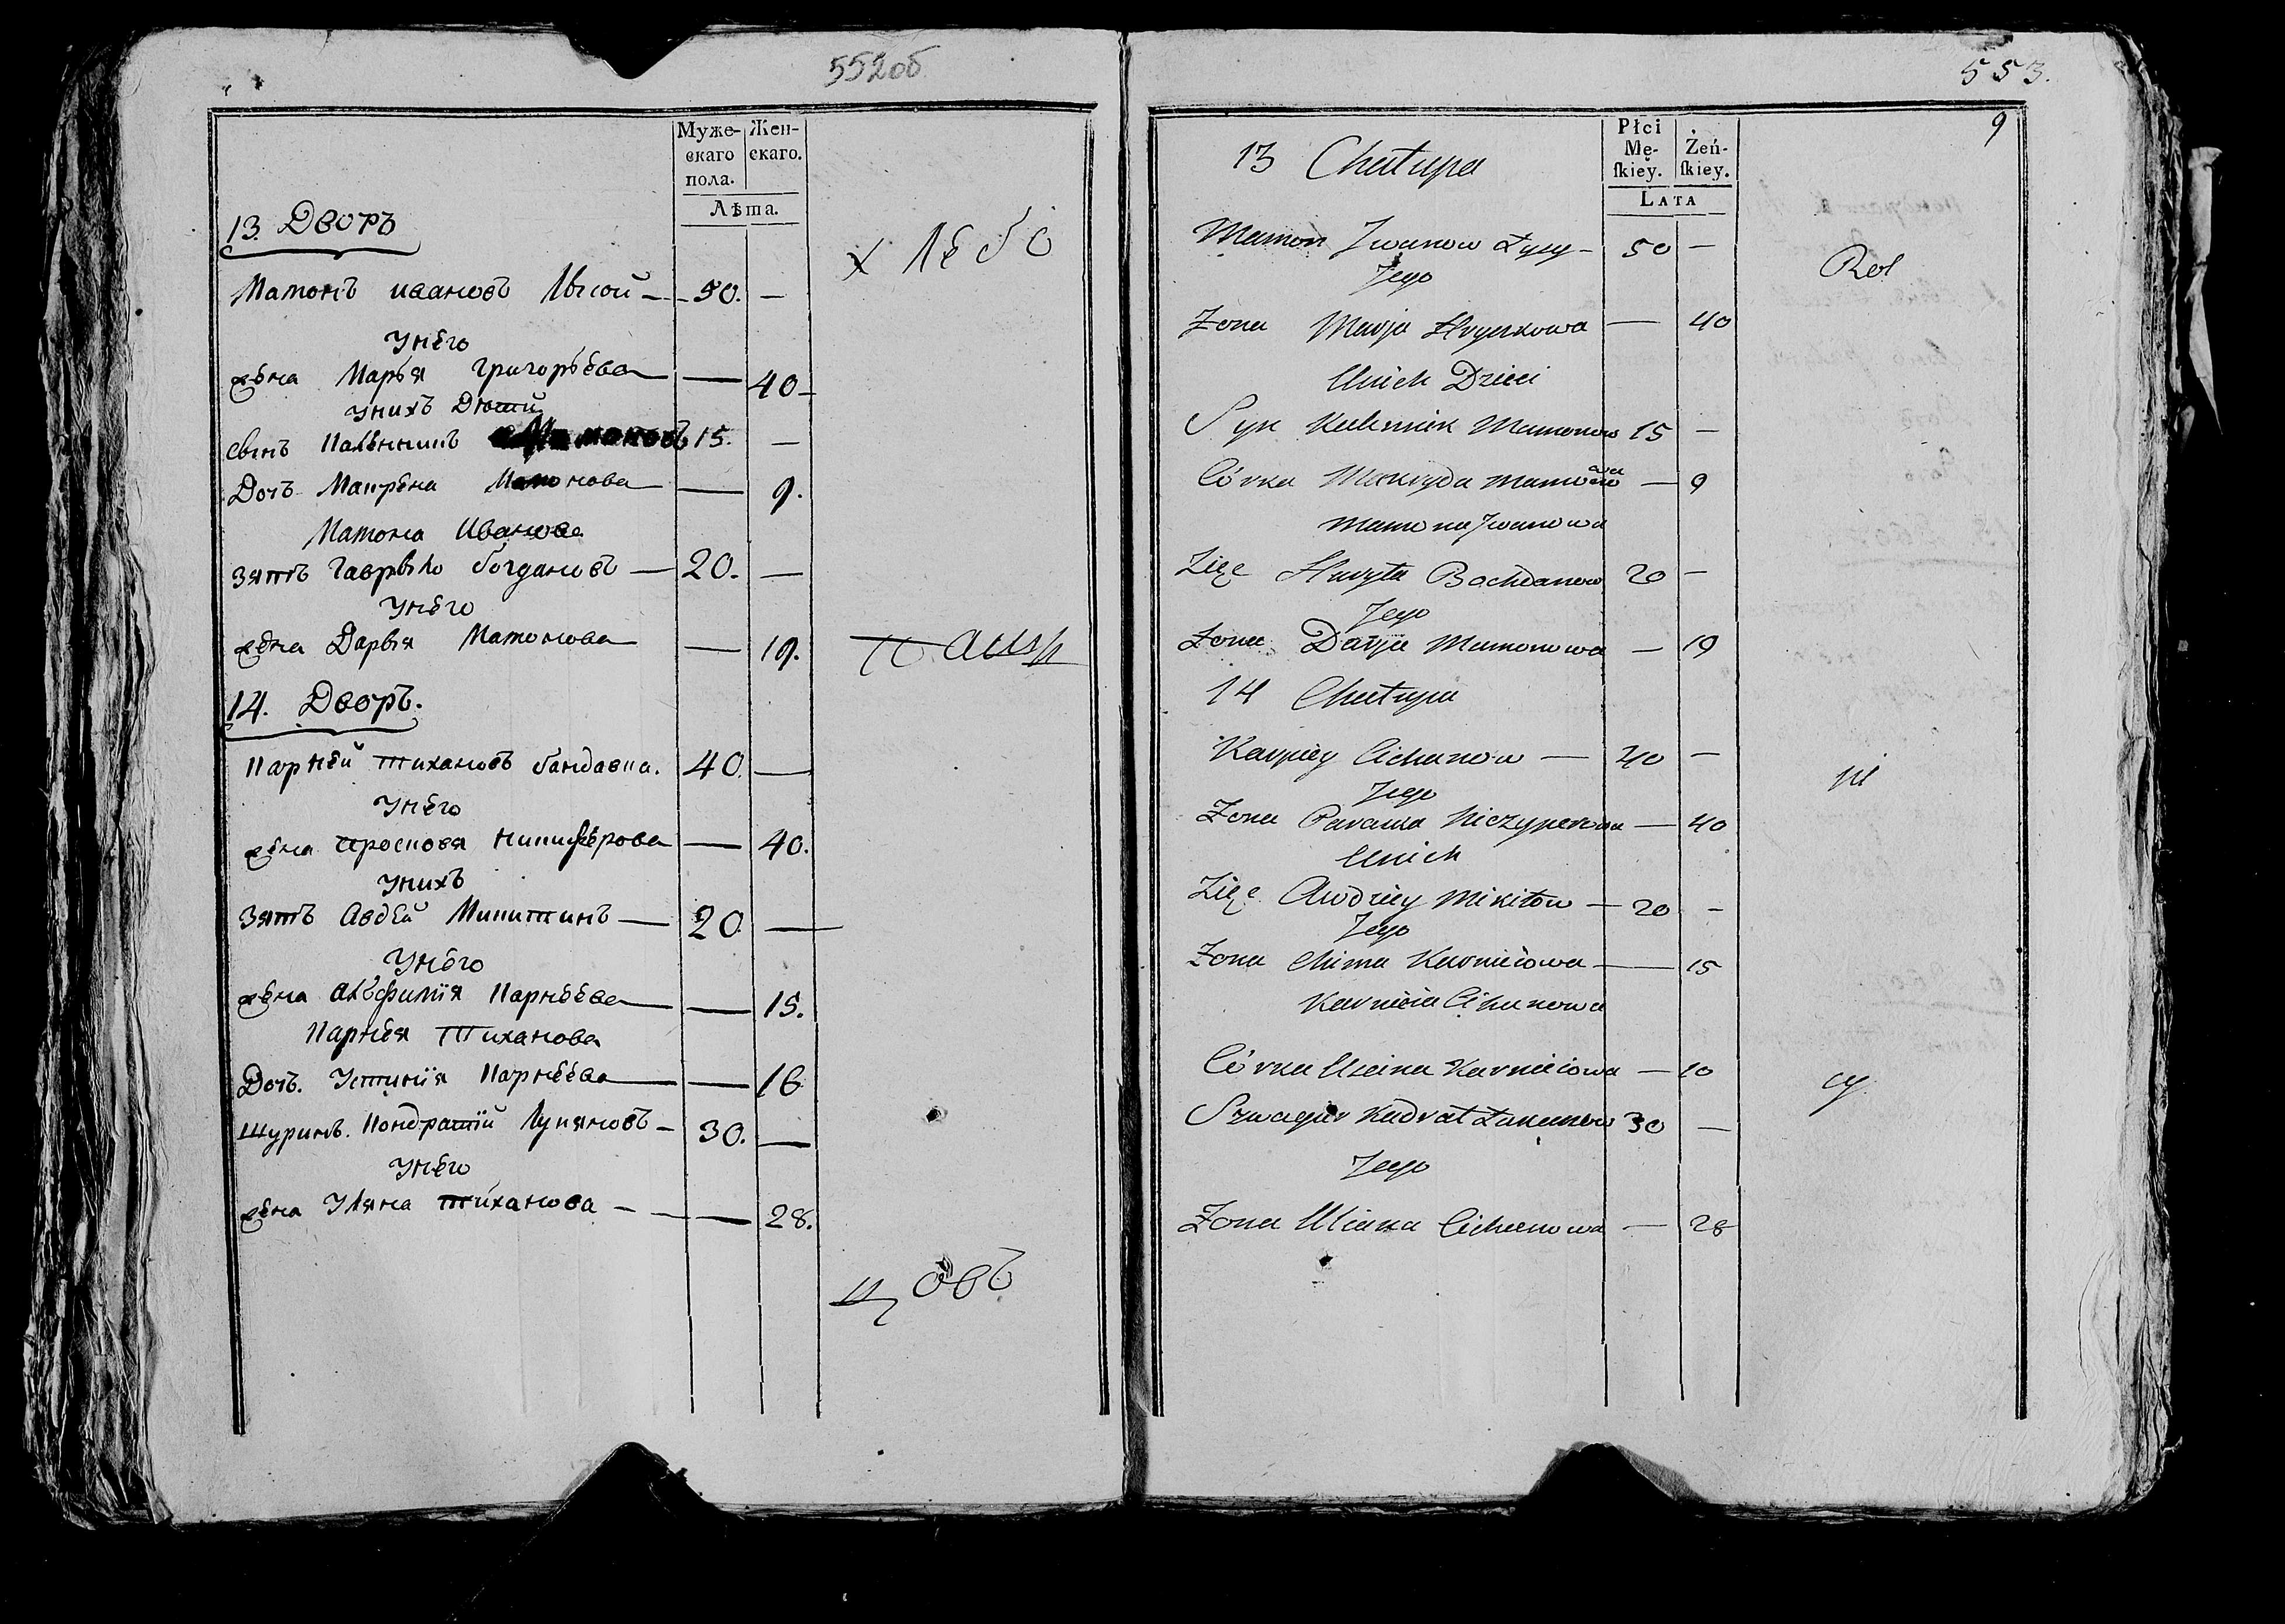 552об
Муже-
скаго
пола.
Жен-
скаго.
Лѣта.
13. Дворъ
Мамонъ ивановъ Лысой — 50. —
Унего
жена Марья Григорьева — 40
Унихъ Дѣти
сынъ 15. —
Дочь Макрена Мамонова — 9.
Мамона Иванова
зять Гаврыло богдановъ — 20. —
Унего
жена Дарья Мамонова — 19.
14. Дворъ.
Карней тихановъ 40. —
Унего
жена Просковя никифѣрова — 40.
Унихъ
Зять Авдей Микитинъ — 20. —
Унего
жена Акъфимія Карнеева — 15.
Карнея Тиханова
Дочь. Устинія Карнеева — 16
Шуринъ. Кондратій Лукяновъ — 30. —
Унего
жена Уляна тиханова — 28.
553.
9
Płci
Mę-
skiey.
Żeń-
skiey.
LATA
13 Chałupa
Mamon Jwanow Łysy — 50 —
Jego
Rol
Żona Marja Hryszkowa — 40
Unich Dzieci
Syn Mamonow 15 —
Córka Makryda — 9
Mamona Jwanowa
Zięc Hawryła Bochdanow 20 —
Jego
Żona Darja Mamonowa — 19
14 Chałupa
Karniey Cichanow — 40 —
Jego
Żona Paraska Niczyperowa — 40
Unich
Zięc Awdziey Mikitow — 20 —
Jego
Żona Chima Karnieiowa — 15
Karnieia Cihanowa
Córka Uscina Karnieiowa — 10
Szwagier Kudrat Łukianow 30 —
Jego
Żona Uliana Cichanowa — 28